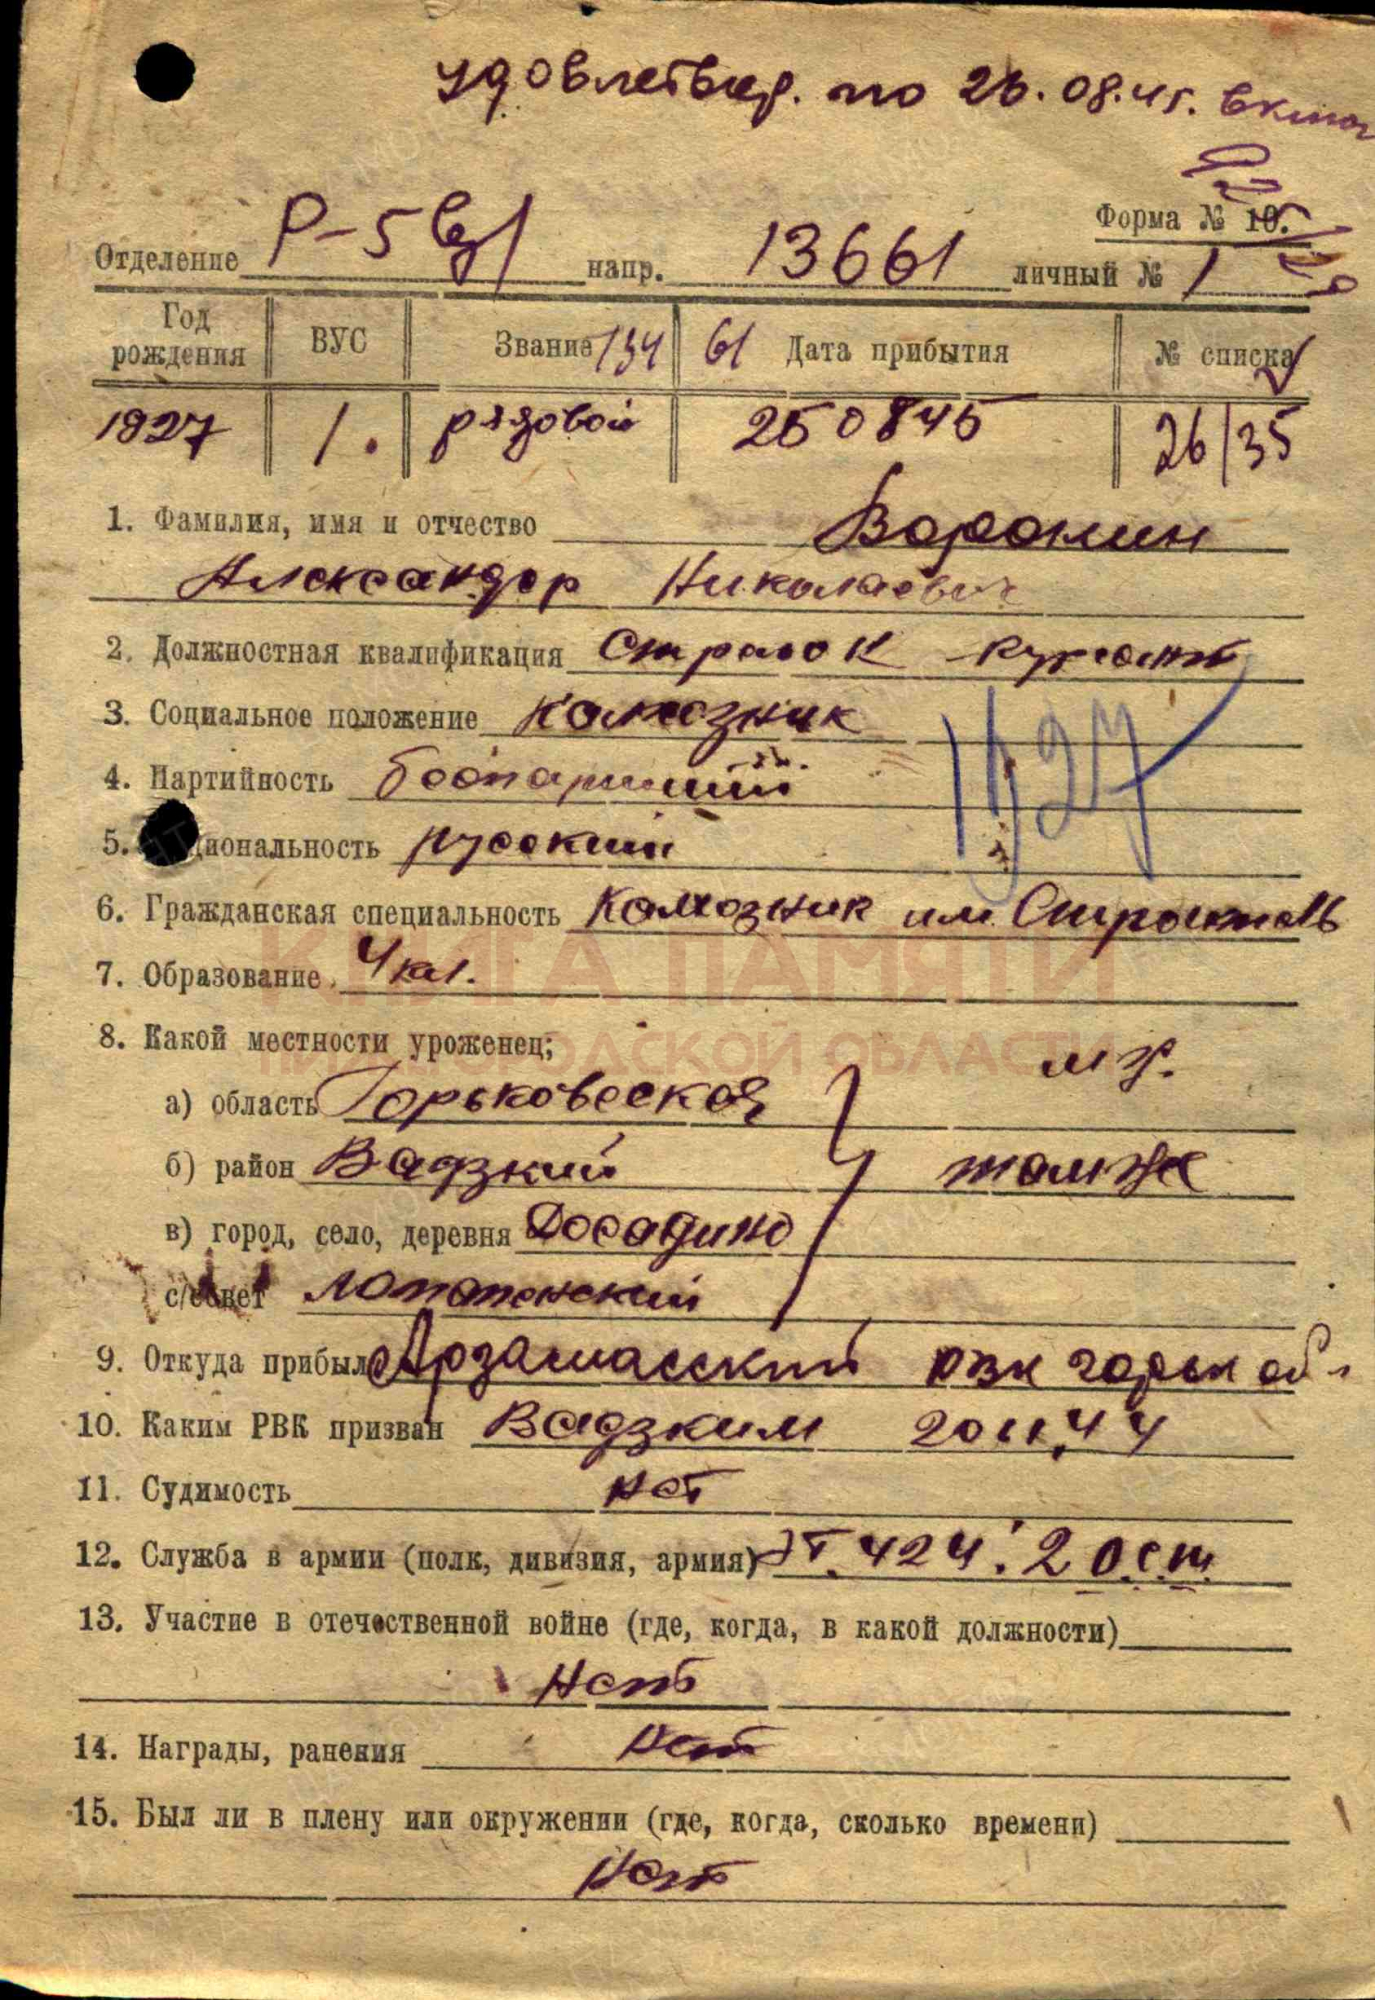 удовлетвор. по 26.08.45. включ
Форма № 10.
Отделение Р-5 напр. 13661 личный № 1
Год рождения ВУС Звание 134 61 Дата прибытия № списка
1927 1. рядовой 250845 26/35
1. Фамилия, имя и отчество Воронин
Александр Николаевич
2. Должностная квалификация Стрелок курсант
3. Социальное положение Колхозник
1927
4. Партийность беспартийний
5. циональность русский
6. Гражданская специальность Колхозник им Строитель
7. Образование 4 кл.
КНИГА ПАМЯТИ
НИЖЕГОРОДСКОЙ ОБЛАСТИ
8. Какой местности уроженец;
а) область Горьковеская
б) район Вадзкий
в) город, село, деревня Досадино
с/совет Лопатенский
м ж.
том же
9. Откуда прибыл Арзамасский рвк горьк об
10. Каким РВК призван Вадзким 20 11,44
11. Судимость нет
12. Служба в армии (полк, дивизия, армия) 424. 2 о.с.п.
13. Участие в отечественной войне (где, когда, в какой должности)
Нет
14. Награды, ранения Нет
15. Был ли в плену или окружении (где, когда, сколько времени)
Нет